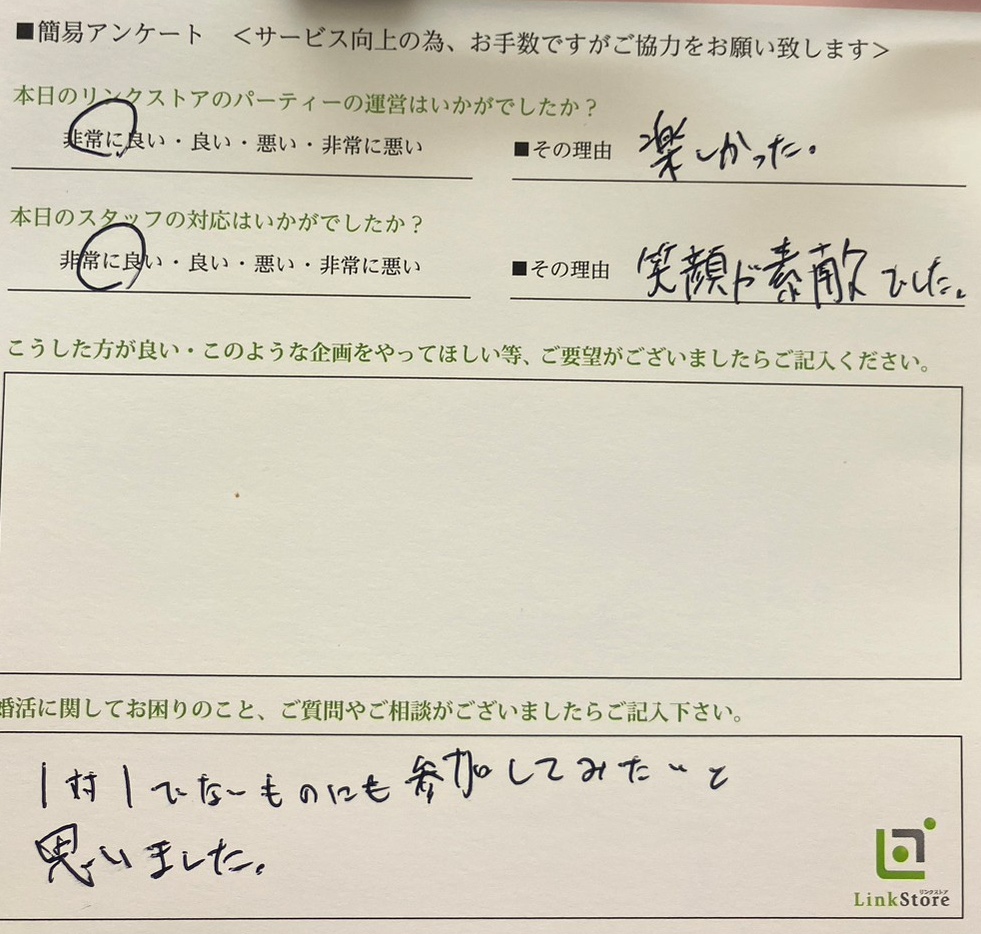 ■簡易アンケート <サービス向上の為、お手数ですがご協力をお願い致します>
本日のリンクストアのパーティーの運営はいかがでしたか？
非常に良い・良い・悪い・非常に悪い ■その理由 楽しかった。
本日のスタッフの対応はいかがでしたか？
非常に良い・良い・悪い・非常に悪い ■その理由 笑顔が素敵でした。
こうした方が良い・このような企画をやってほしい等、ご要望がございましたらご記入ください。
婚活に関してお困りのこと、ご質問やご相談がございましたらご記入下さい。
1対1でないものにも参加してみたいと
思いました。
リンクストア
LinkStore